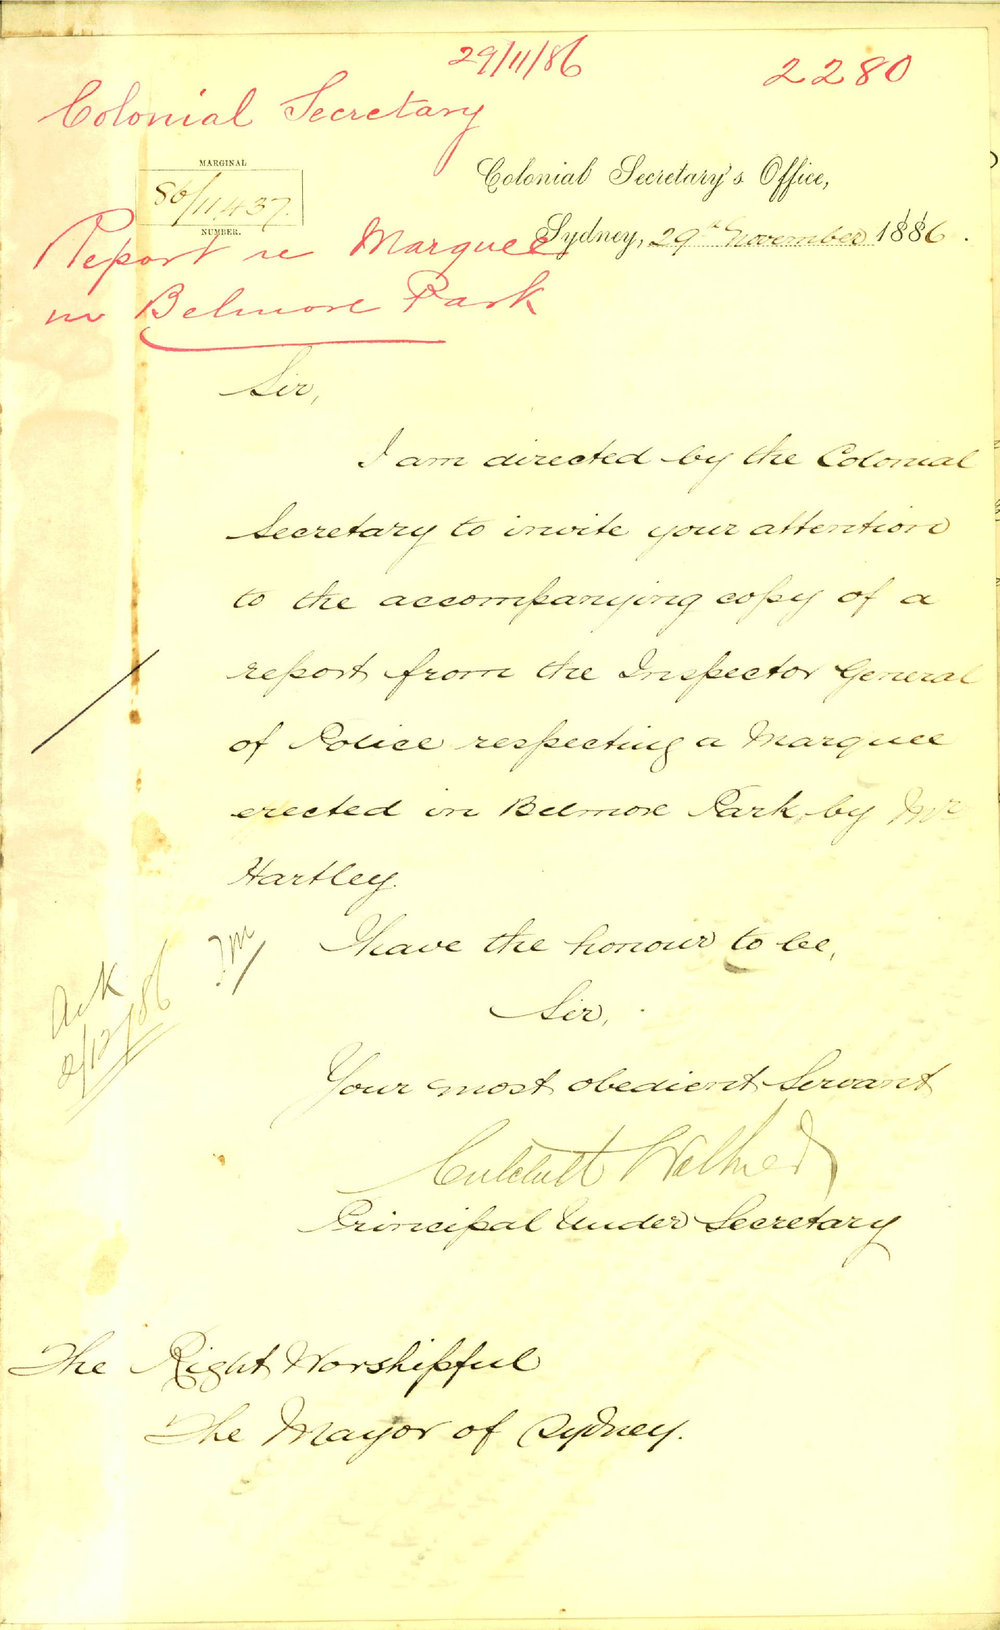 29/11/86
2280
Colonial Secretary
MARGINAL
86/11,437.
NUMBER.
Colonial Secretary's Office,
Sydney, 29th November 1886.
Report re Marquee
in Belmore Park
Sir,
I am directed by the Colonial
Secretary to invite your attention
to the accompanying copy of a
report from the Inspector General
of Police respecting a Marquee
erected in Belmore Park, by Mr
Hartley.
I have the honour to be,
Sir,
Your most obedient Servant
Critchett Walker
Principal Under Secretary
Ack
2/12/86
The Right Worshipful
The Mayor of Sydney.